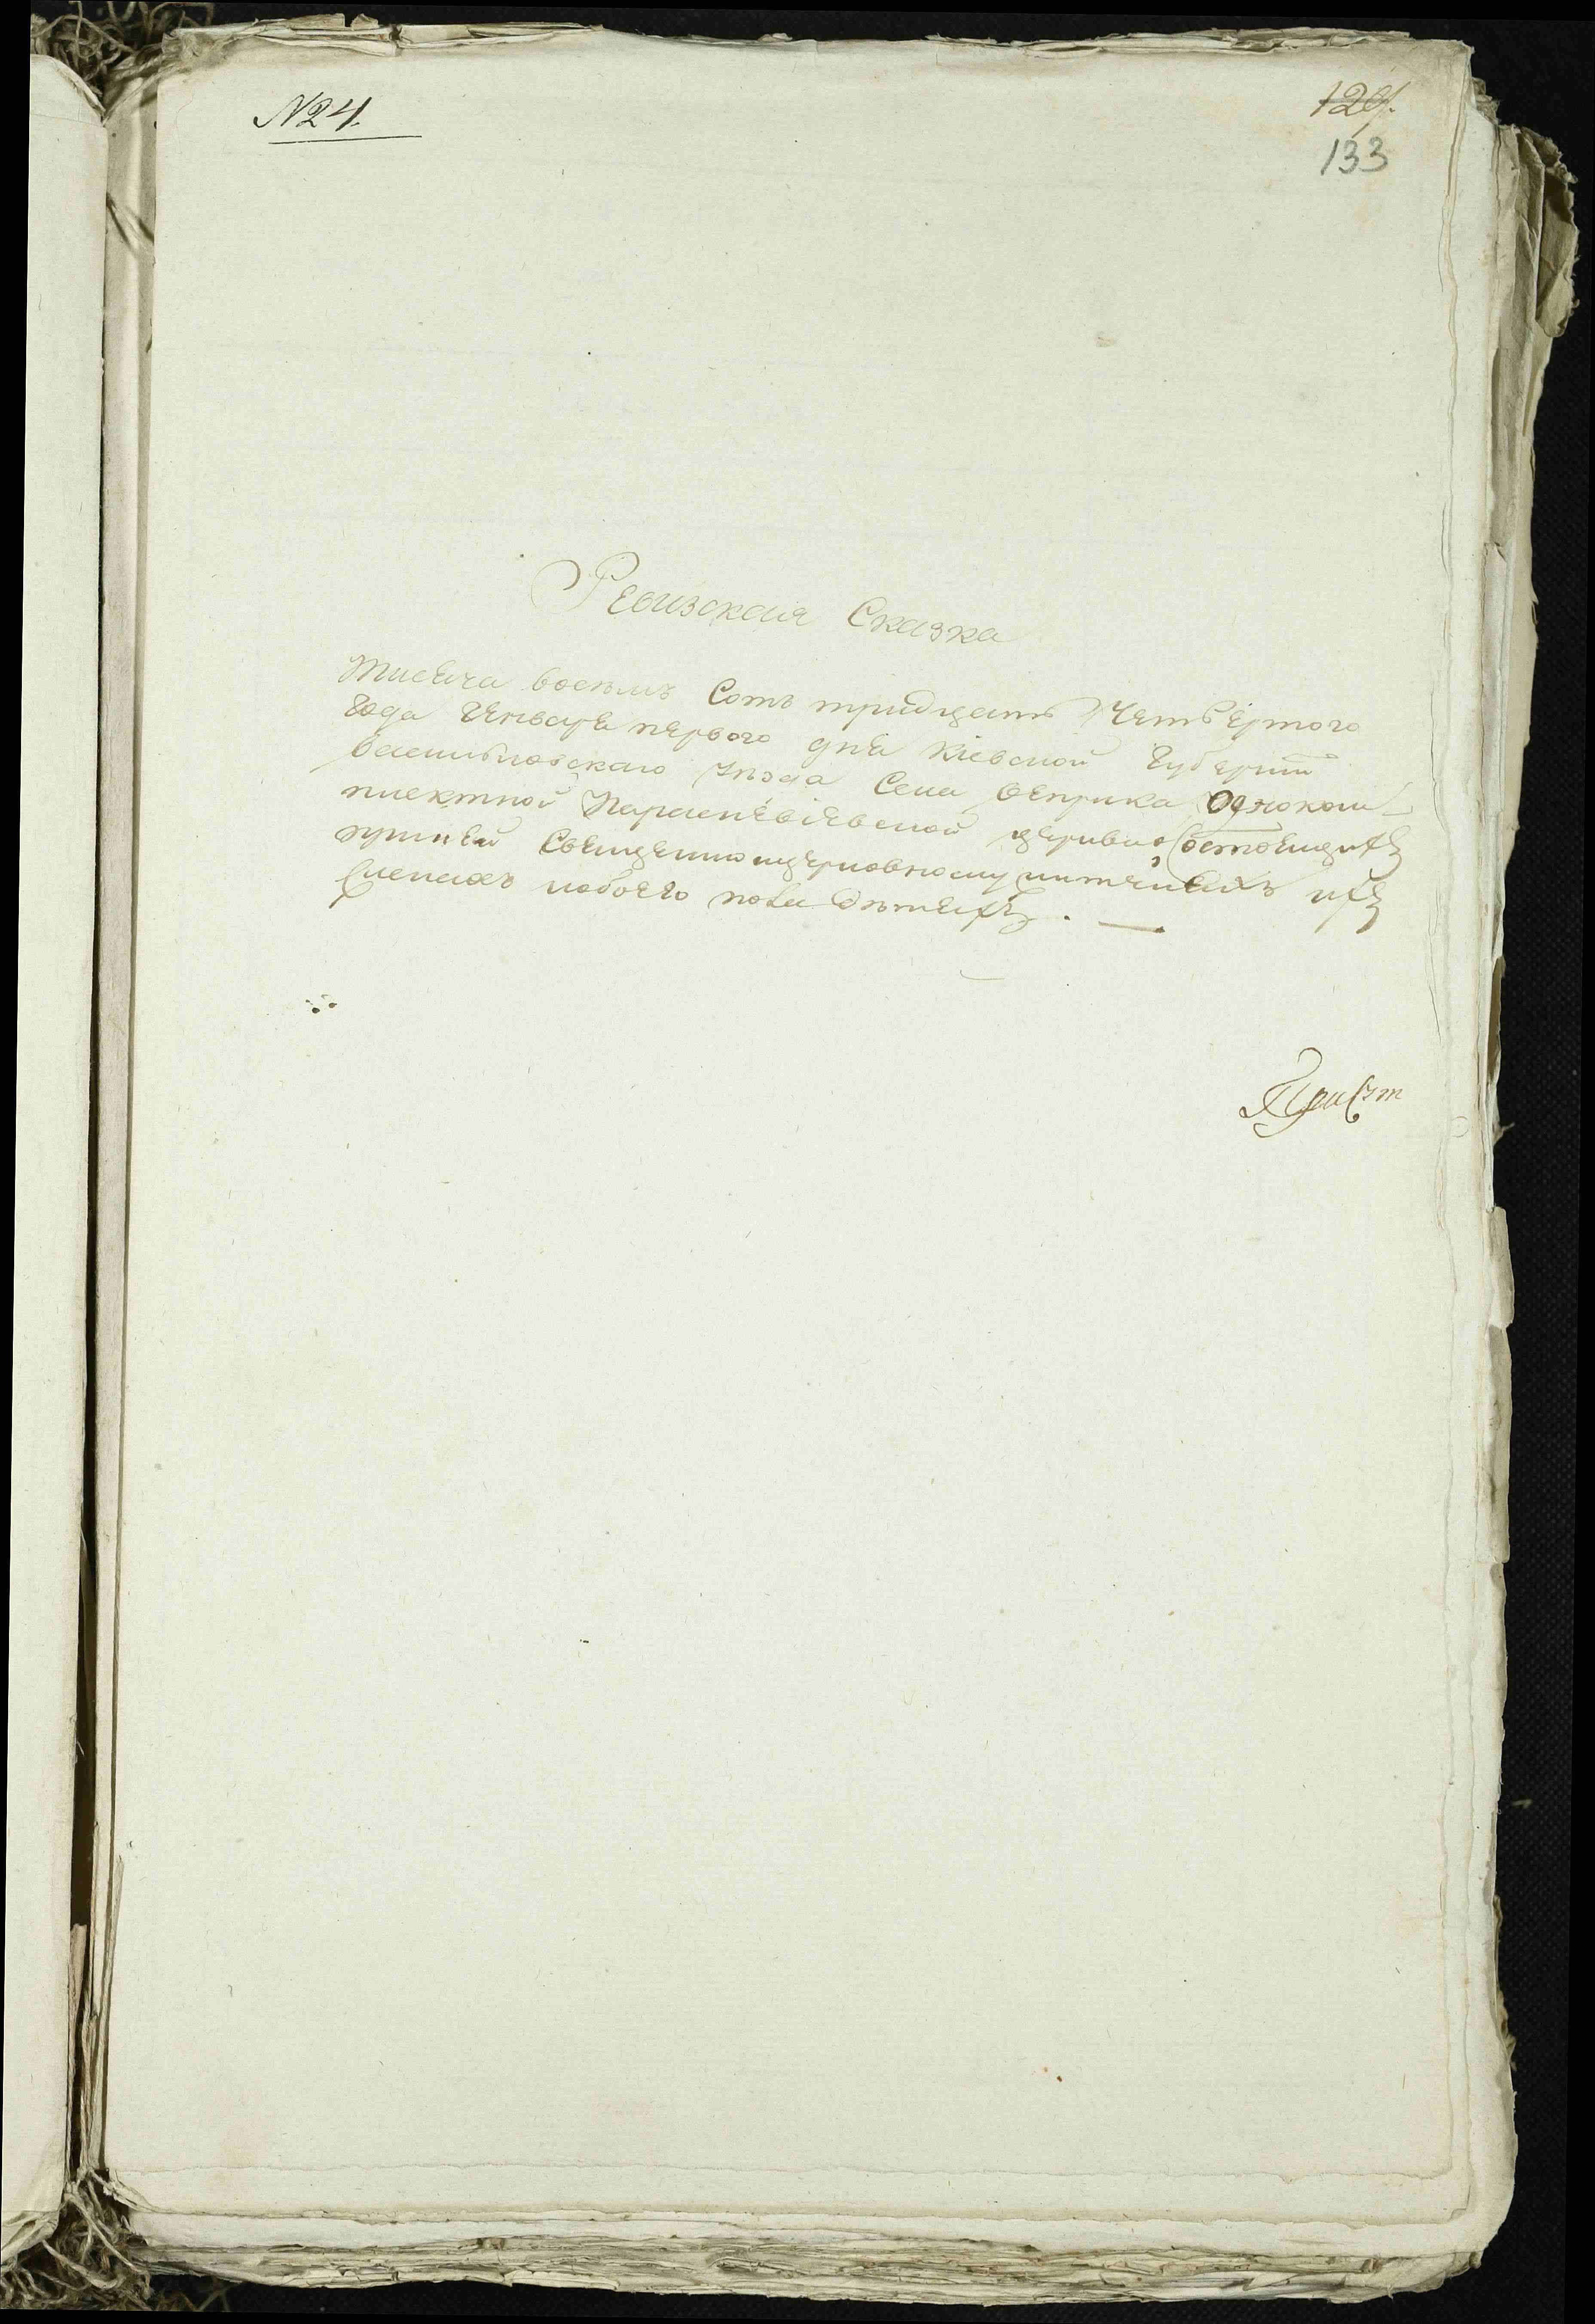 № 24.
129.
133
Ревизская Сказка
Тисеча восемъ Сотъ тридцать Четвертого
Года Генваря первого дня Кіевской Губерніи
васильковского уезда Села веприка Одноком-
плектной Параскевіевской церкви о Состоящихъ
при ней Священноцерковно ихъ
женахъ обоего пола детехъ. —
Присут